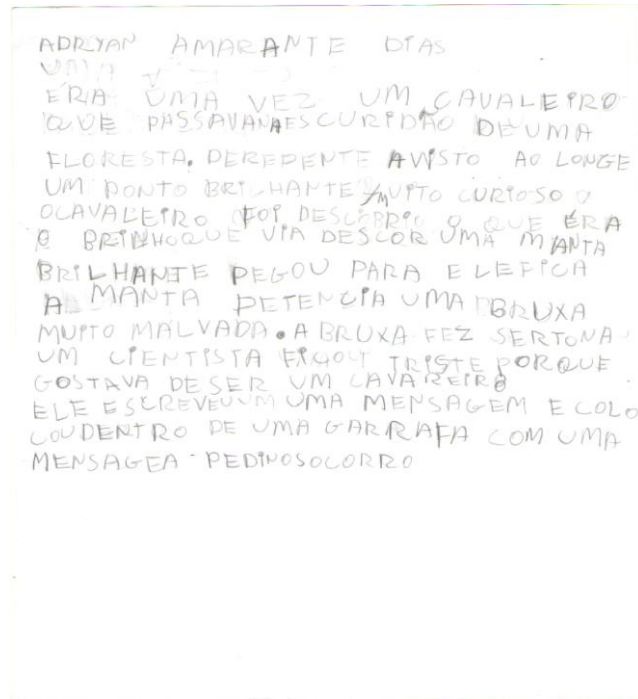 ADRYAN AMARANTE DIAS
UMA
ERIA UMA VEZ UM CAVALEIRO
QUE PASSAVANAESCURIDÃO DE UMA
FLORESTA. DEREPENTE AVISTO AO LONGE
UM PONTO BRILHANTE MUITO CURIOSO O
OCAVALEIRO FOI DESCOBRIO O QUE ÉRA
O BRINHOQUE VIA DESCOR UMA MANTA
BRILHANTE PEGOU PARA ELEFICA
A MANTA PETENCIA UMA BRUXA
MUITO MALVADA. A BRUXA FEZ SERTONA
UM CIENTISTA TRISTE PORQUE
GOSTAVA DESER UM CAVAREIRO
ELE ESCREVEUUM UMA MENSAGEM E COLO
COUDENTRO DE UMA GARRAFA COM UMA
MENSAGEA - PEDINOSOCORRO